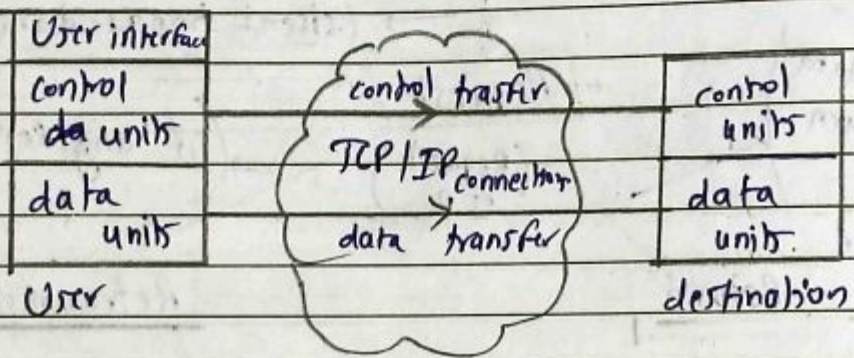 User interface
control
da units
data
units
User.
control trasfer.
TCP/IP connection
data transfer
control
units
data
units.
destination